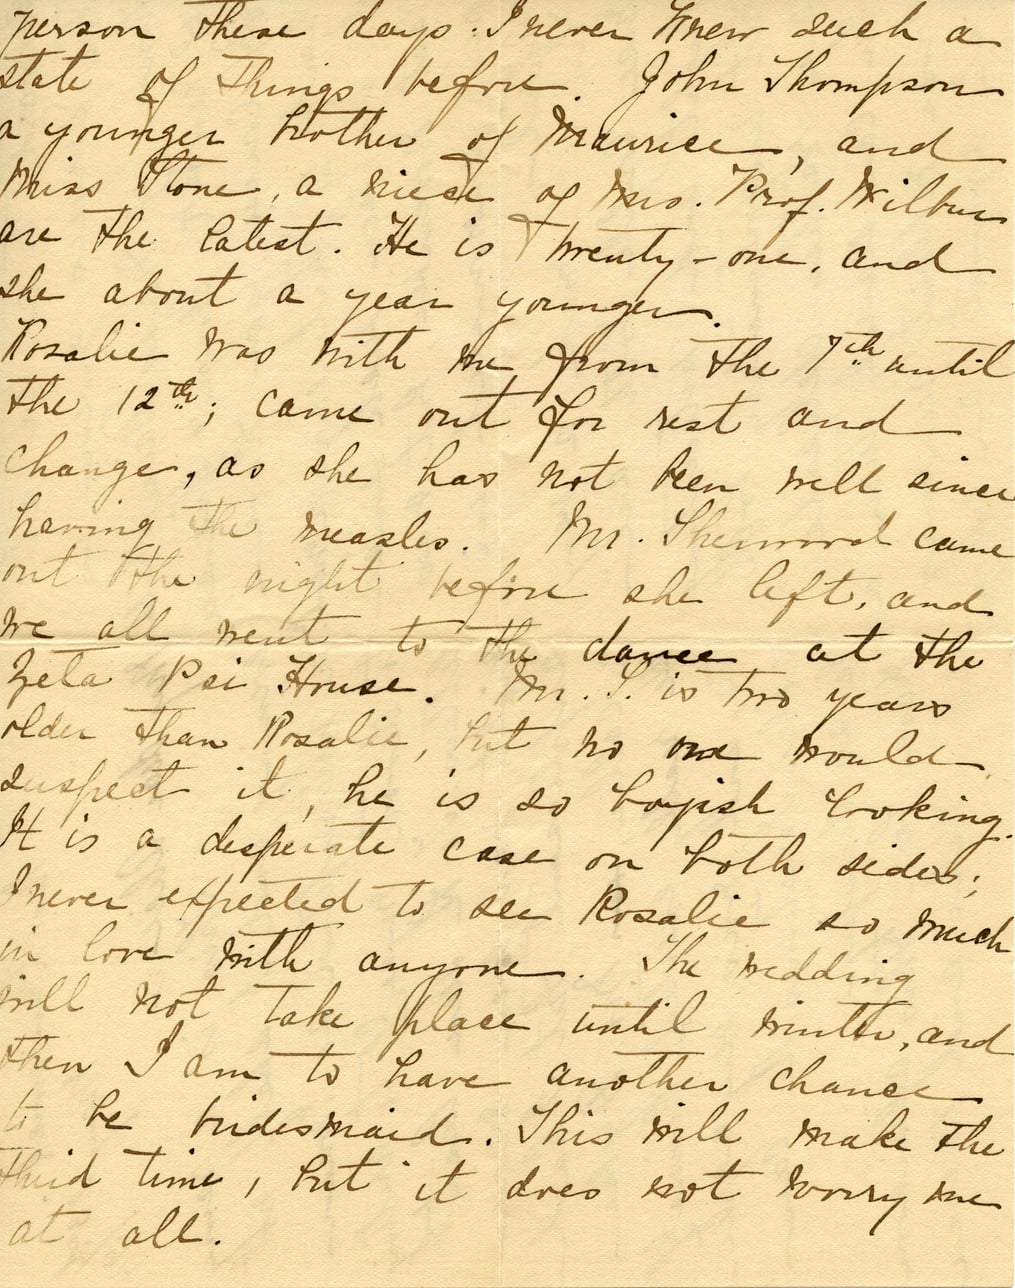 person these days. I never knew such a
state of things before. John Thompson
a younger brother of Maurice, and
Miss Stone, a niece of Mrs. Prof. Wilbur
are the latest. He is twenty-one, and
she about a year younger.
Rosalie was with me from the 7th until
the 12th; came out for rest and
change, as she has not been well since
having the measles. Mr. Sherwood came
out the night before she left, and
we all went to the dance at the
Zeta Psi House. Mr. S. is two years
older than Rosalie, but no one would
suspect it, he is so boyish looking.
It is a desperate case on both sides;
I never expected to see Rosalie so much
in love with anyone. The wedding
will not take place until winter, and
then I am to have another chance
to be bridesmaid. This will make the
third time, but it does not worry me
at all.